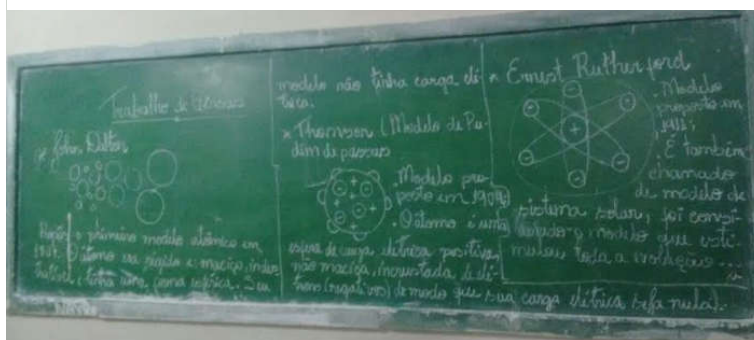 Trabalho de Ciências
* John Dalton
Propôs o primeiro modelo atômico em
O átomo era rígido e maciço, indi
e tinha uma forma esférica. Seu
modelo não tinha carga elé
trica.
* Thomson (Modelo de Pu
dim de passas
. Modelo pro
posto em
. O átomo é uma
esfera de carga elétrica positiva,
não maciça, incrustada de elé
trons (negativos) de modo que sua carga elétrica seja nula).
* Ernest Rutherford
. Modelo
proposto em
1911;
. É também
chamado
de modelo de
sistema solar, foi consi
derado o modelo que esti
mulou toda a evolução ...